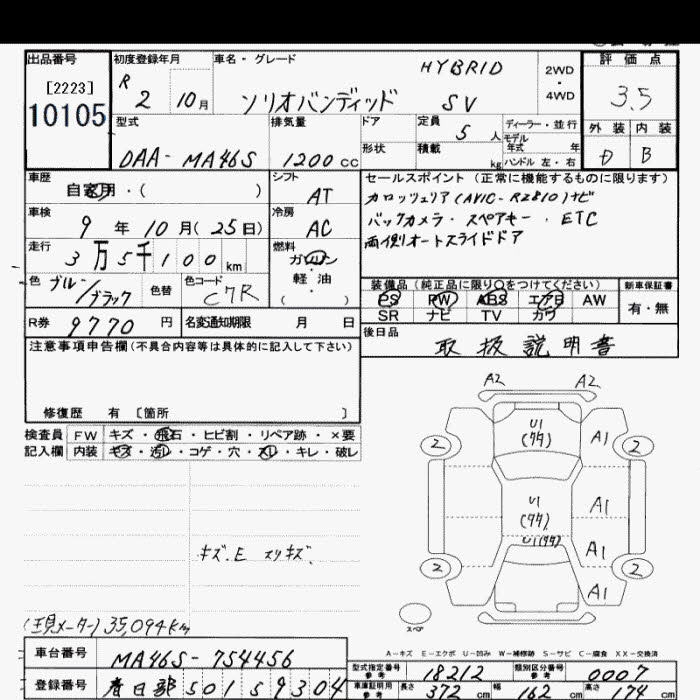 出品番号
[2223]
10105
初度登録年月
R 2 10月
車名・グレード
HYBRID
ソリオバンディッド SV
2WD
・
4WD
評価点
3.5
外装 内装
D B
型式
DAA-MA46S
排気量
1200cc
ドア
形状
定員
5人
積載
kg
ディーラー・並行
モデル
年式 年
ハンドル 左・右
車歴
自家用・( )
シフト
AT
セールスポイント(正常に機能するものに限ります)
カロッツェリア(AVIC-RZ810)ナビ
バックカメラ・スペアキー・ETC
両側オートスライドドア
車検
9年10月(25日)
冷房
AC
走行
3万5千100km
燃料
ガソリン
軽油
( )
色
ブルー/ブラック
色替
色コード
C7R
装備品(純正品に限り○をつけてください)
PS PW ABS エアB AW
SR ナビ TV カワ
新車保証書
有・無
R券 9770円
名変通知期限 月 日
後日品
取扱説明書
注意事項申告欄(不具合内容等は具体的に記入して下さい)
修復歴 有 〔箇所 〕
検査員
記入欄
FW キズ・飛石・ヒビ割・リペア跡・×要
内装 キズ・汚レ・コゲ・穴・スレ・キレ・破レ
キズ.E スリキズ.
(現メーター)35,094km
A2 A2
U1
(クク)
A1
2 2
U1
(クク)
A1
U1(クク)
A1
2 2
A1
スペア
A-キズ E-エクボ U-凹み W-補修跡 S-サビ C-腐食 XX-交換済
車台番号
MA46S-754456
登録番号
春日部 501 ら 9304
型式指定番号
参考
18212
類別区分番号
参考
0007
車庫証明用
参考
長さ 372cm 幅 162cm 高さ 174cm